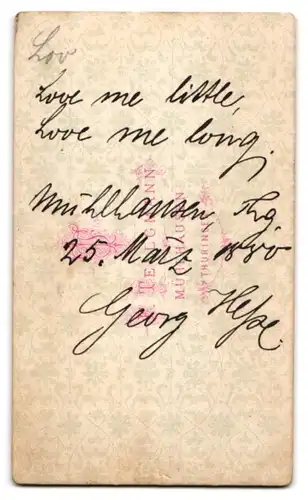 Lov
Love me little,
Love me long.
Mühlhausen, Thg
25. März 1880
Georg Hesse.
TELLGMANN
MÜHLHAUSEN
THÜRINGEN